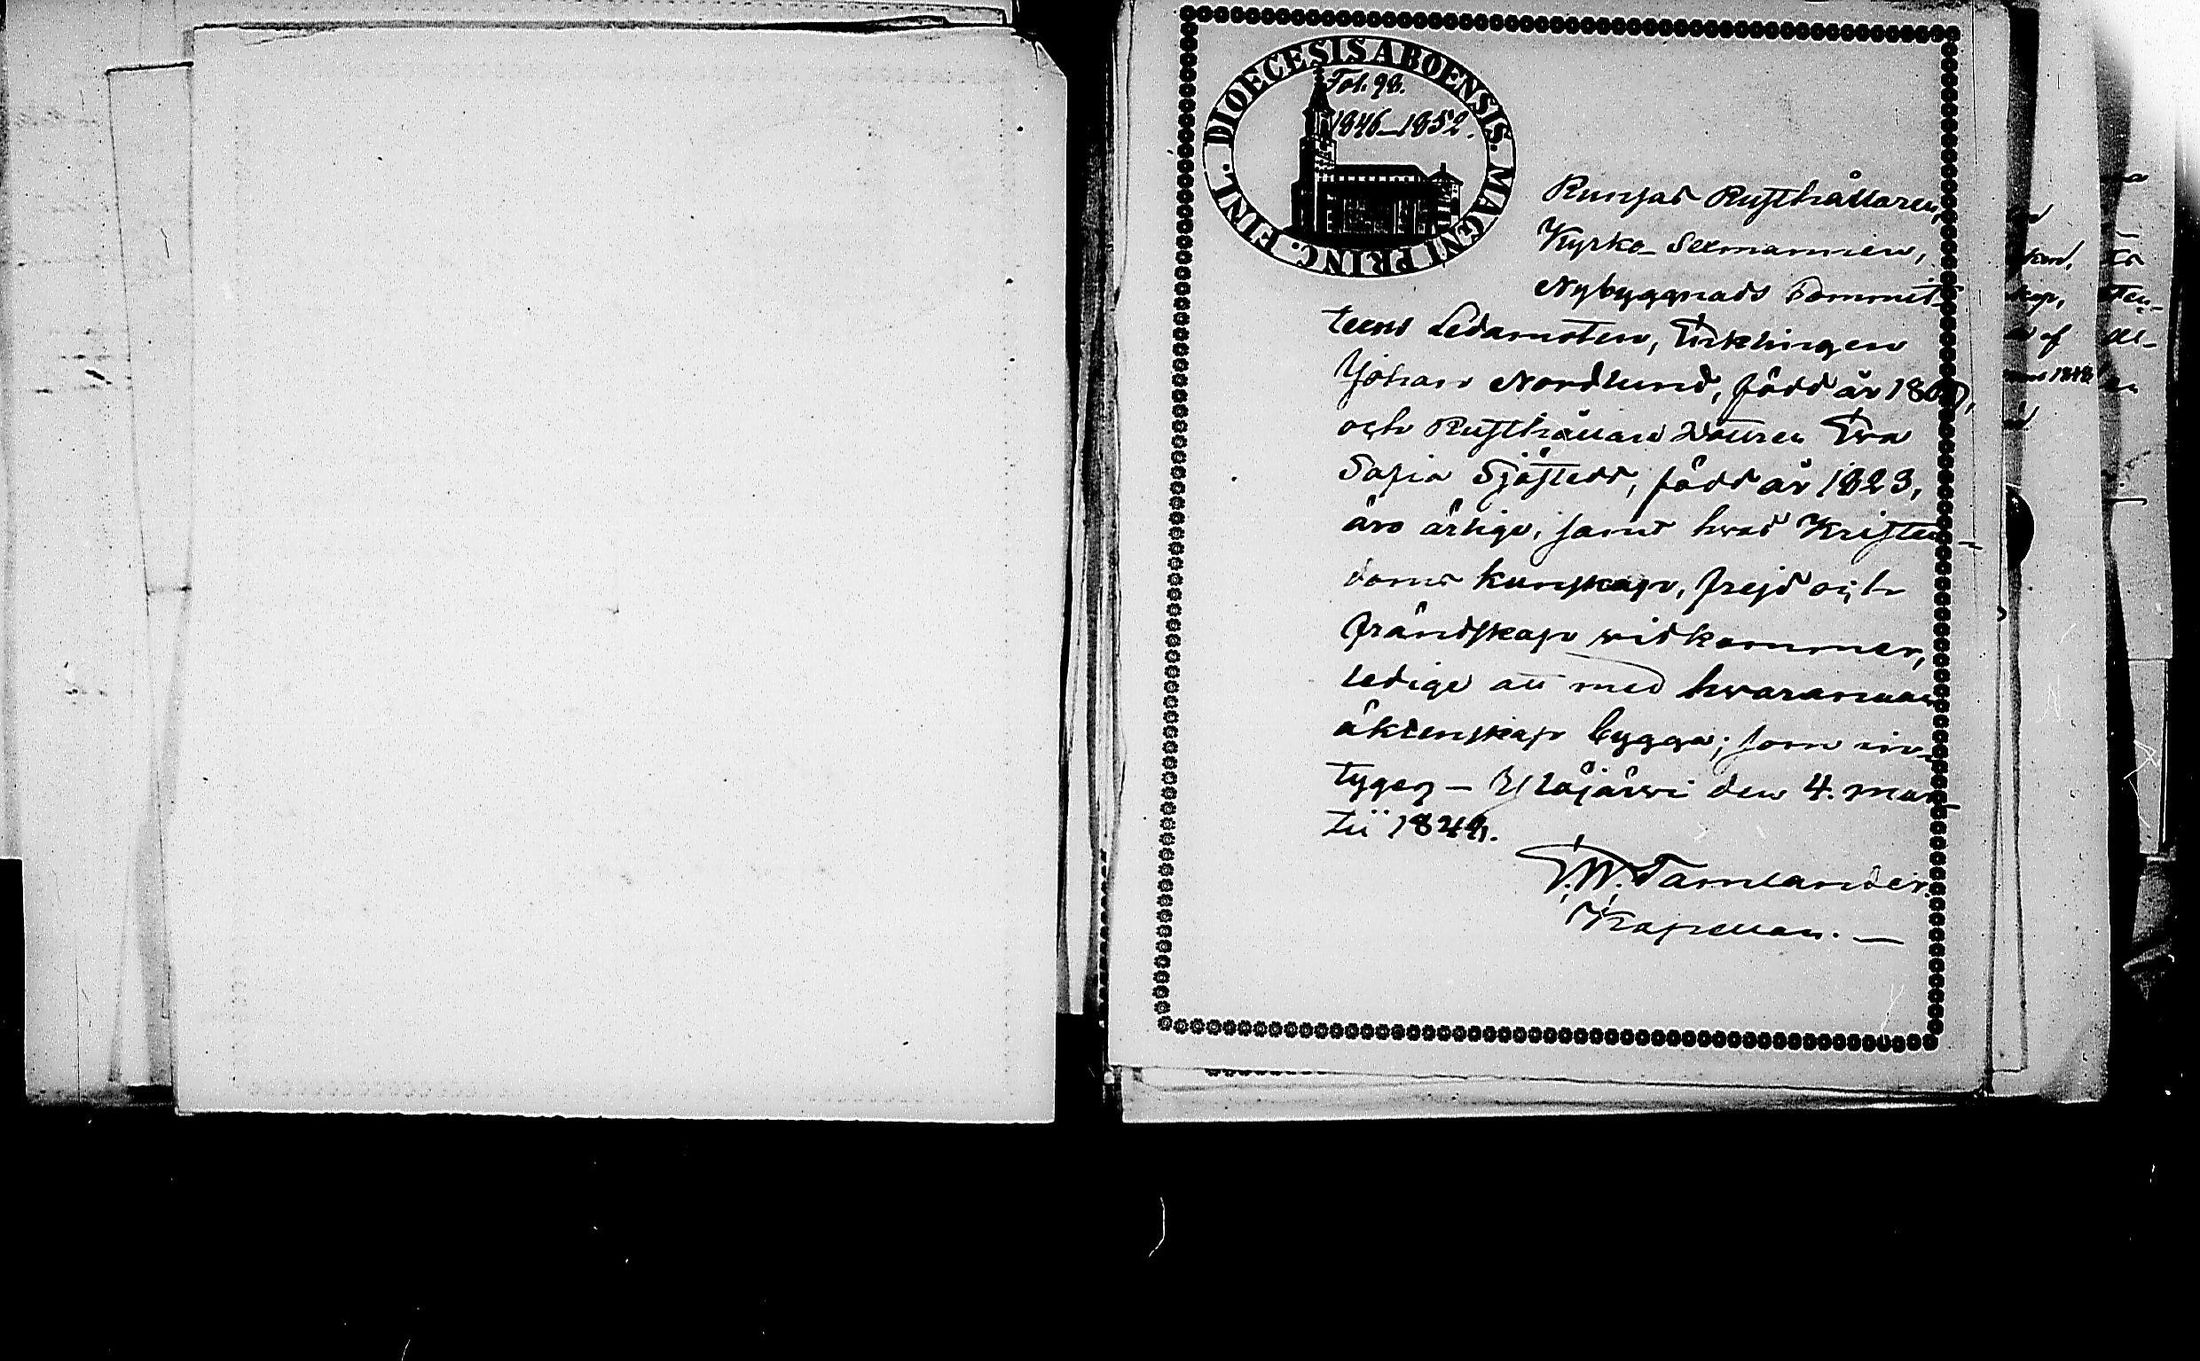 DIOECESIS ABOENSIS. MAGNI PRINC. FINL.
Fol. 98.
1846–1852.
Runsas Rusthållaren,
Kyrko-Sexmannen,
Nybyggnads Committ-
teens Ledamoten, Enklingen
Johan Nordlund, född år 1800,
och Rusthållare Dottren Eva
Sofia Sjöstedt, född år 1823,
äro ärlige, samt hvad Kristen-
doms kunskap, frejd och
frändskap vidkommer,
ledige att med hvarannan
äktenskap bygga; som in-
tygen — Ylöjärvi den 4. mar-
tii 1849.
Tamlander.
Kapellan. —